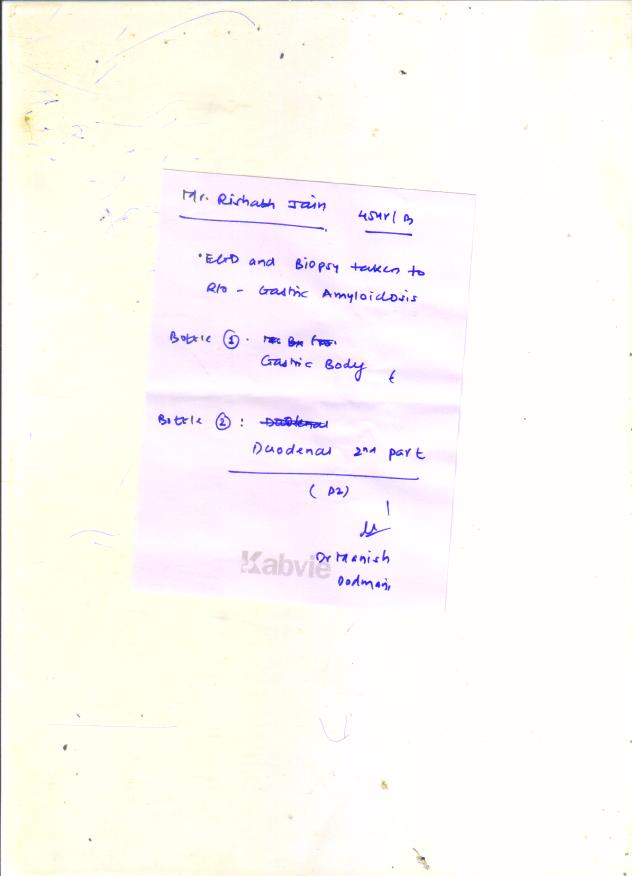 Mr. Rishabh Jain 45Yr/M
EGD and Biopsy taken to
R/o - Gastric Amyloidosis
Bottle ① .
Gastric Body
Bottle ② :
Duodenal 2nd part
(D2)
Dr Manish
Dodmani
Kabvie